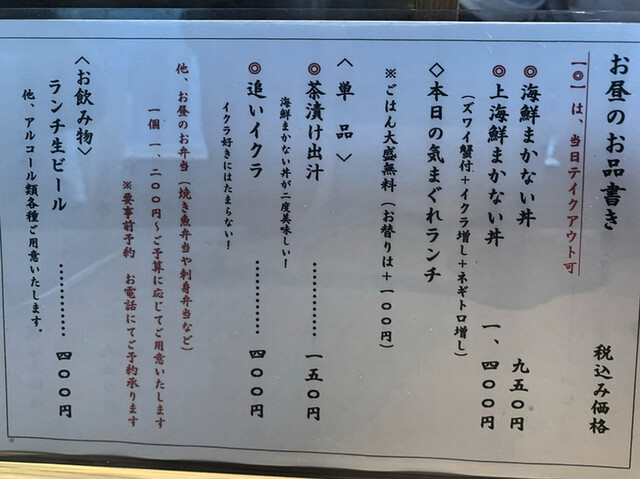 お昼のお品書き
税込み価格
【◎】は、当日テイクアウト可
◎海鮮まかない丼 九五〇円
◎上海鮮まかない丼 一、四〇〇円
(ズワイ蟹付+イクラ増し+ネギトロ増し)
◇本日の気まぐれランチ
※ごはん大盛無料(お替りは+一〇〇円)
〈単品〉
◎茶漬け出汁 ………… 一五〇円
海鮮まかない丼が二度美味しい!
◎追いイクラ ………… 四〇〇円
イクラ好きにはたまらない!
他、お昼のお弁当(焼き魚弁当や刺身弁当など)
一個 一、二〇〇円~ご予算に応じてご用意いたします
※要事前予約 お電話にてご予約承ります
〈お飲み物〉
ランチ生ビール ………… 四〇〇円
他、アルコール類各種ご用意いたします。